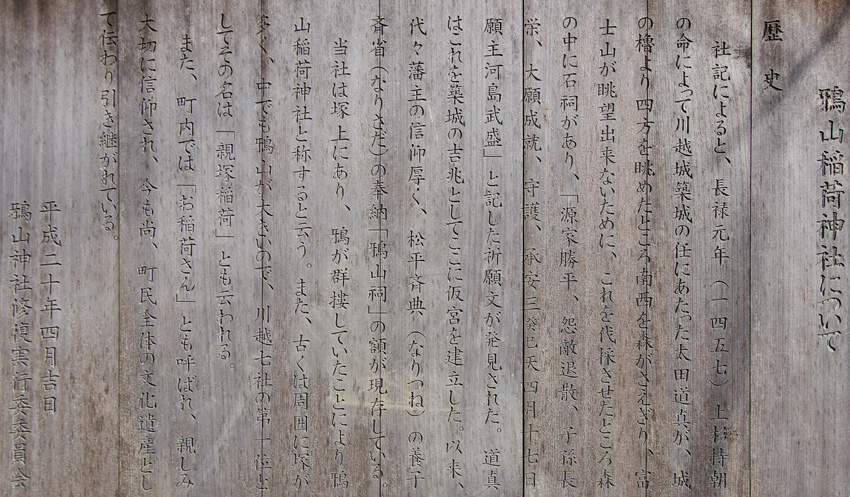 鴉山稲荷神社について
歴史
社記によると、長禄元年(一四五七)上杉持朝
の命によって川越城築城の任にあたった太田道真が、城
の櫓より四方を眺めたところ南西を森がさえぎり、富
士山が眺望出来ないために、これを伐採させたところ森
の中に石祠があり、「源家勝平、怨敵退散、子孫長
栄、大願成就、守護、承安三癸巳天四月十七日
願主河島武盛」と記した祈願文が発見された。道真
はこれを築城の吉兆としてここに仮宮を建立した。以来、
代々藩主の信仰厚く、松平斉典(なりつね)の養子
斉省(なりさだ)の奉納「鴉山祠」の額が現存している。
当社は塚上にあり、鴉が群棲していたことにより鴉
山稲荷神社と称すると云う。また、古くは周囲に塚が
多く、中でも鴉山が大きいので、川越七社の第一位と
してその名は「親塚稲荷」とも云われる。
また、町内では「お稲荷さん」とも呼ばれ、親しみ
大切に信仰され、今も尚、町民全体の文化遺産とし
て伝わり引き継がれている。
平成二十年四月吉日
鴉山神社修復実行委委員会